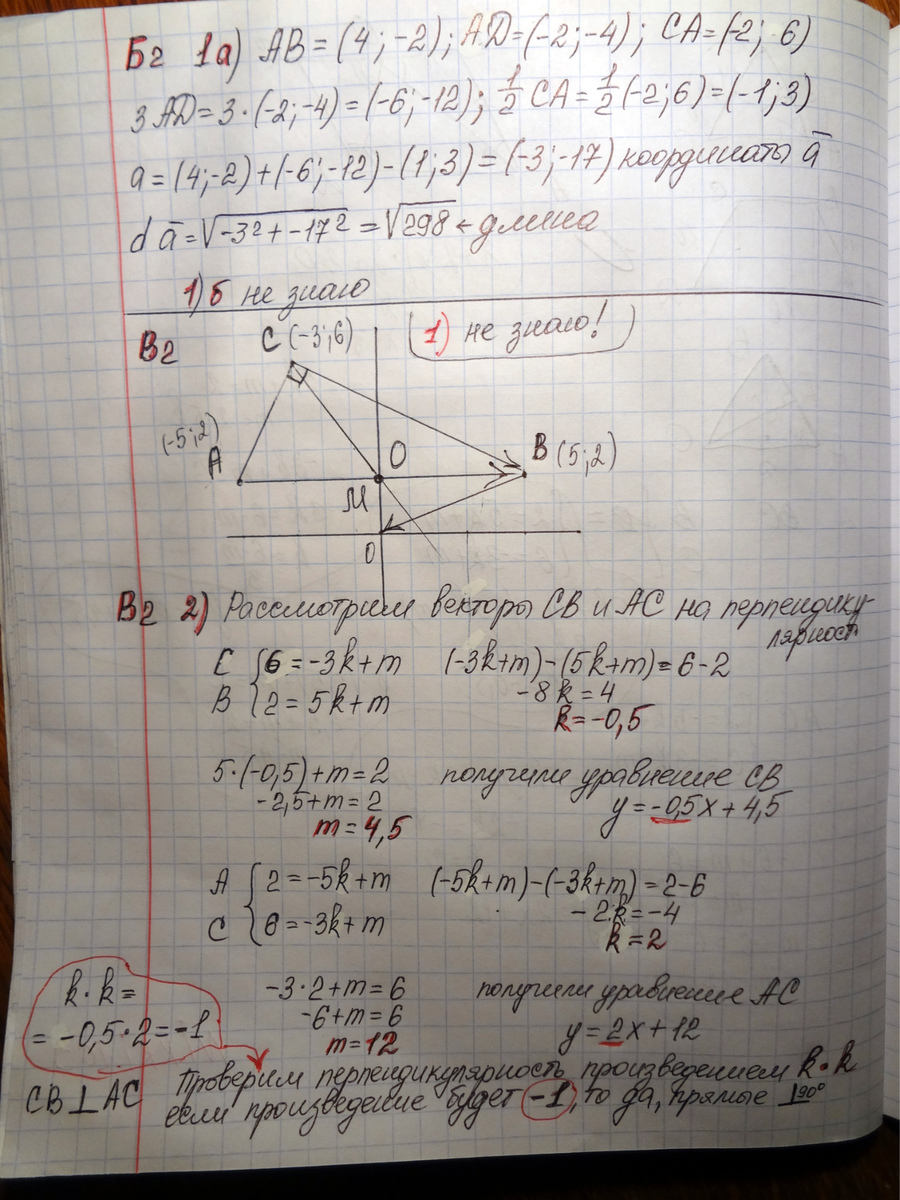 Б2 1а) AB = (4; -2); AD = (-2; -4); CA = (-2; 6)
3AD = 3·(-2; -4) = (-6; -12); 1/2 CA = 1/2 (-2; 6) = (-1; 3)
a = (4; -2) + (-6; -12) - (1; 3) = (-3; -17) координаты a̅
d a̅ = √-3² + -17² = √298 ← длина
1) б не знаю
В2
C (-3; 6)
1) не знаю!
(-5; 2)
A
O
B (5; 2)
M
O
В2 2) Рассмотрим векторы CB и AC на перпендику-
лярность
C { 6 = -3k + m (-3k+m) - (5k+m) = 6 - 2
B { 2 = 5k + m -8k = 4
k = -0,5
5·(-0,5) + m = 2 получили уравнение CB
-2,5 + m = 2 y = -0,5x + 4,5
m = 4,5
A { 2 = -5k + m (-5k+m) - (-3k+m) = 2 - 6
C { 6 = -3k + m -2k = -4
k = 2
k·k =
= -0,5·2 = -1
-3·2 + m = 6 получили уравнение AC
-6 + m = 6 y = 2x + 12
m = 12
CB ⊥ AC
Проверим перпендикулярность произведением k·k
если произведение будет -1, то да, прямые ⊥ 90°